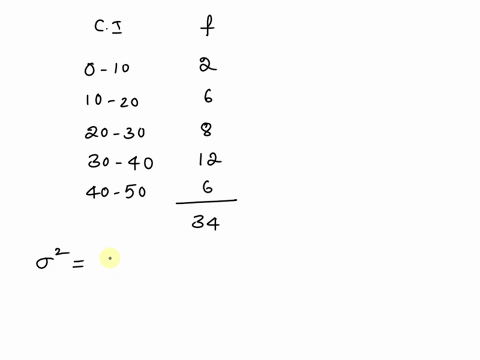 C.I f
0-10 2
10-20 6
20-30 8
30-40 12
40-50 6
34
σ² =